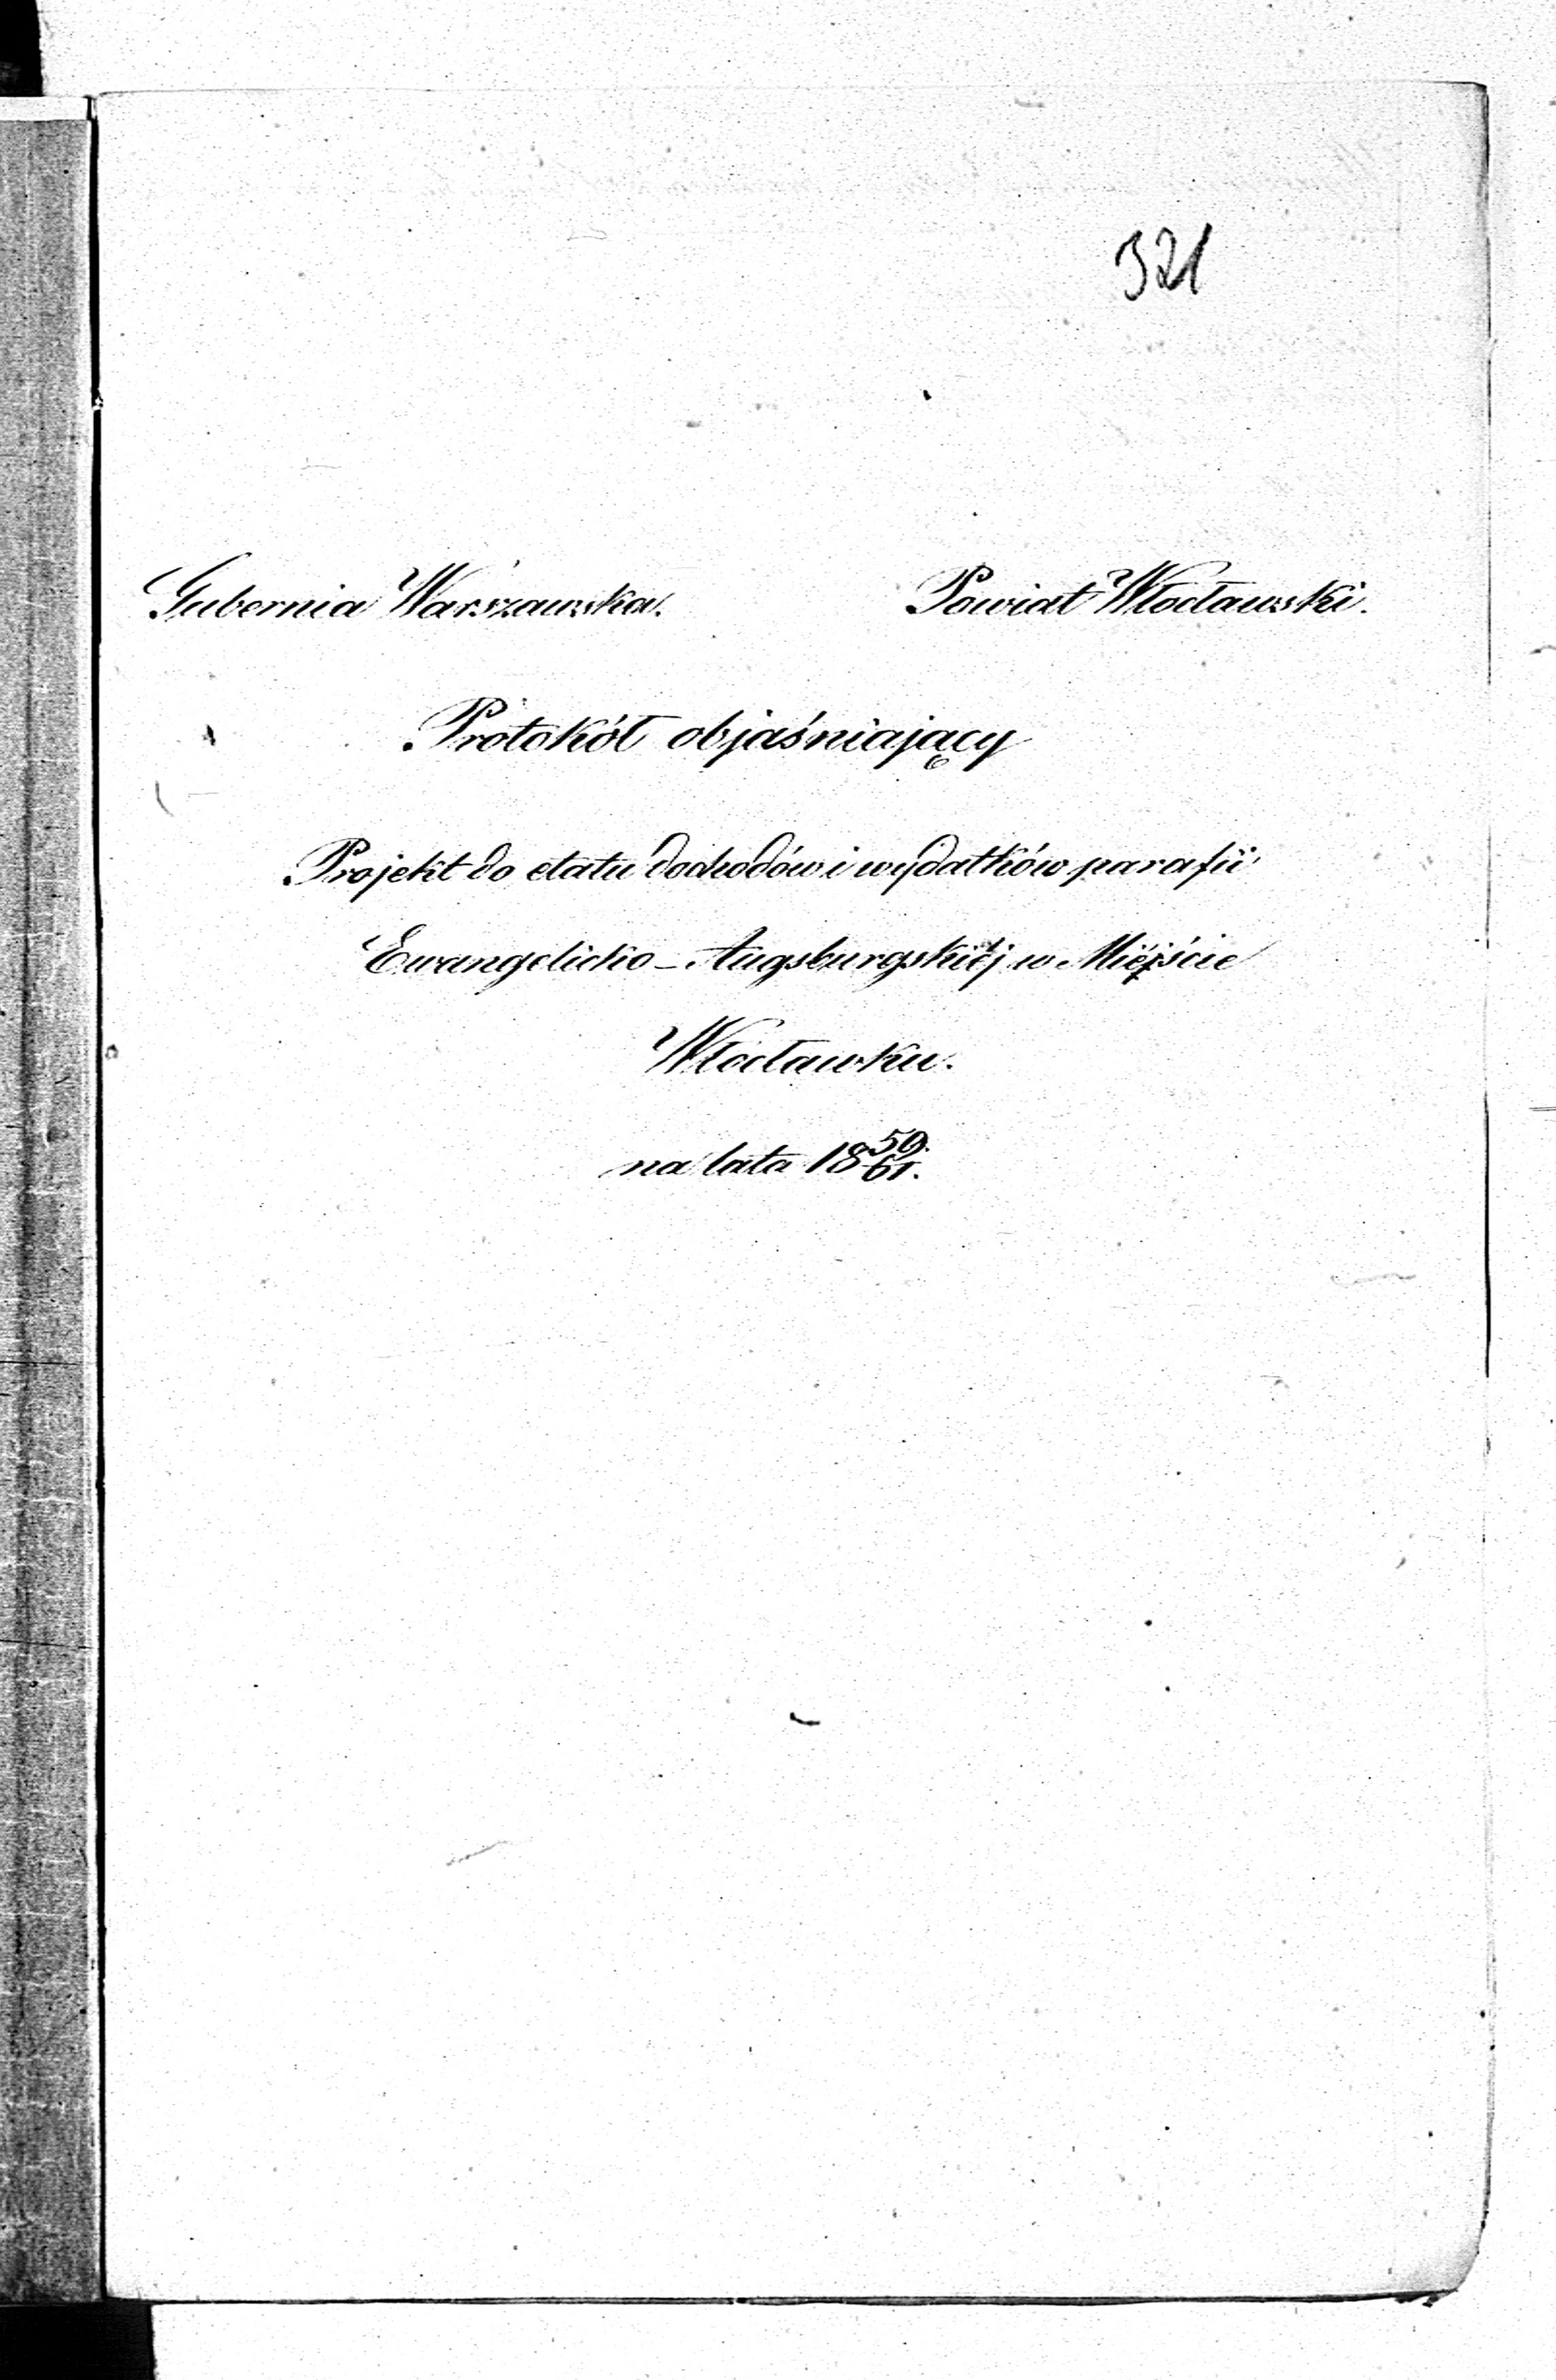 321
Gubernia Warszawska. Powiat Włocławski.
Protokół objaśniający
Projekt do etatu dochodów i wydatków parafii
Ewangelicko-Augsburgskiéj w Miéjście
Włocławku.
na lata 18 59/61.